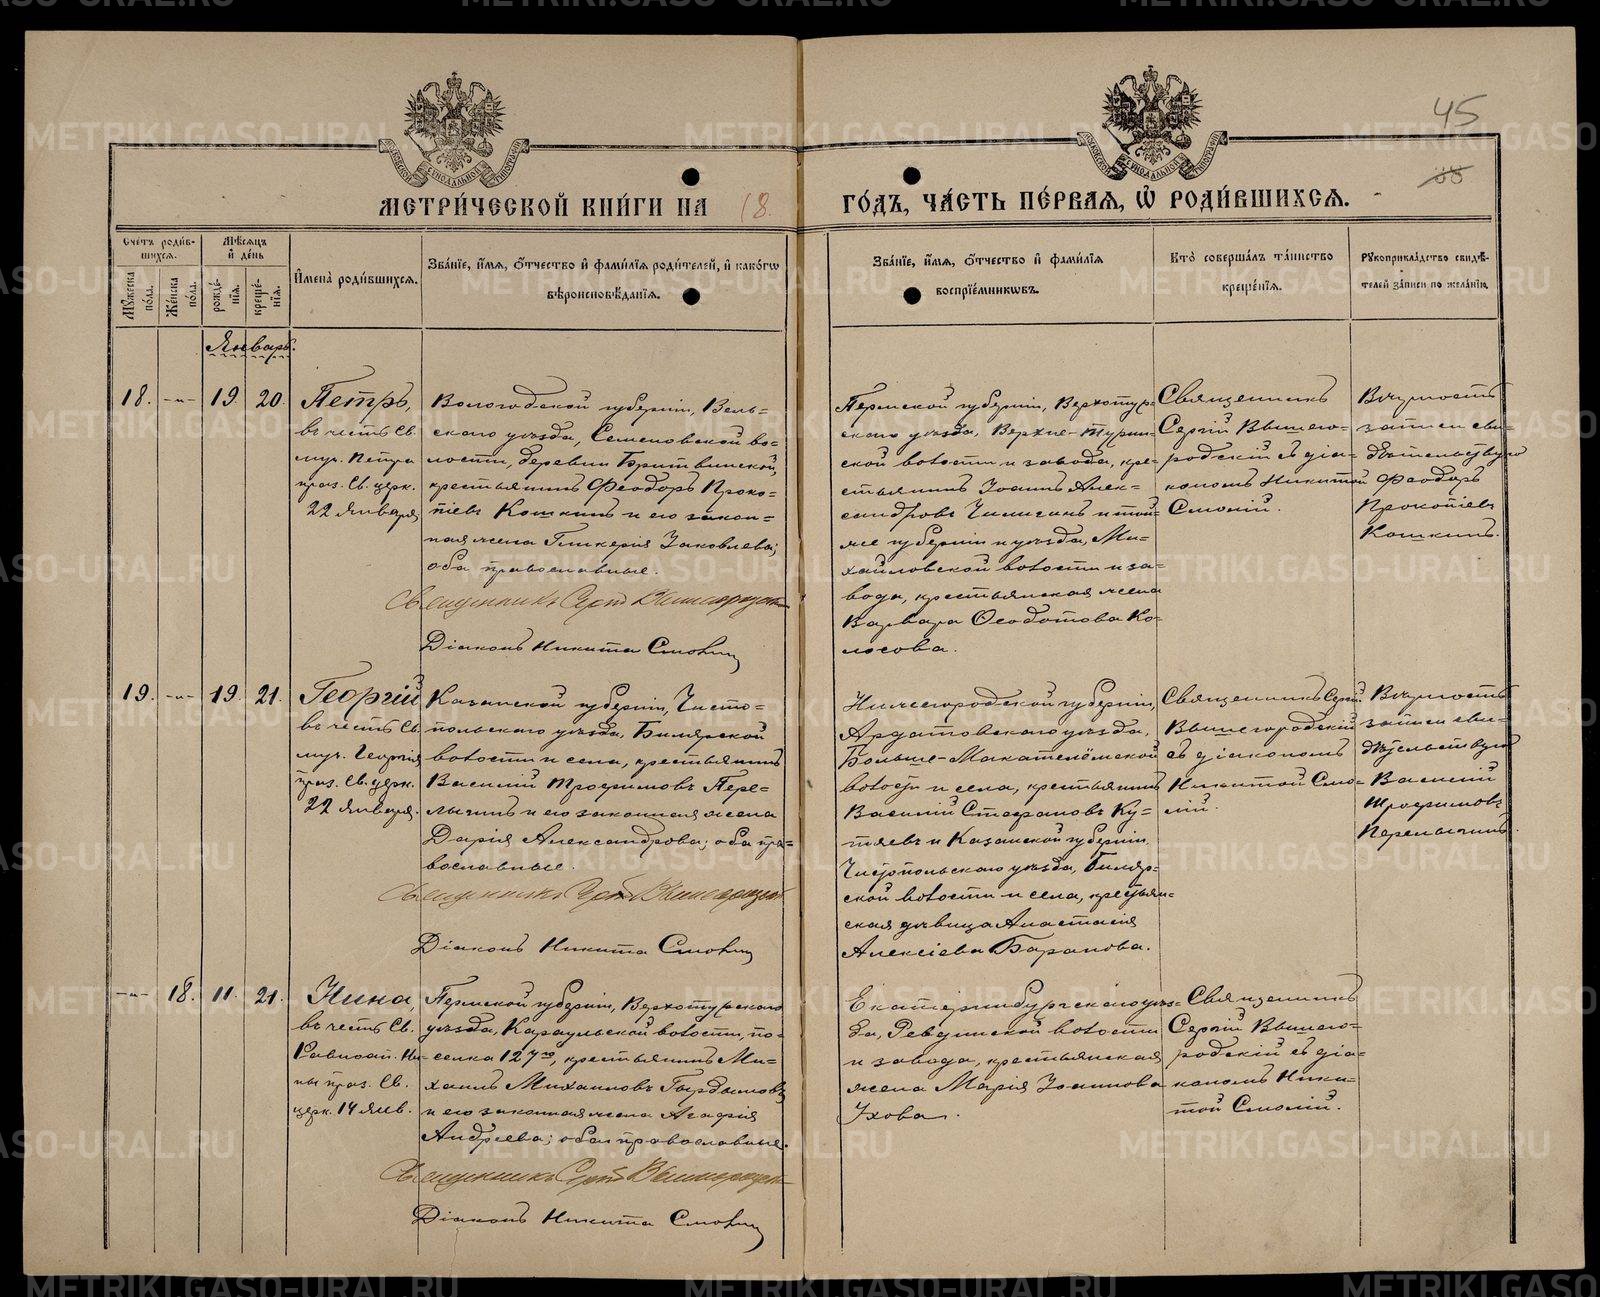 45
МЕТРИ́ЧЕСКОЙ КНИ́ГИ НА 18
ГО́ДЪ, ЧА́СТЬ ПЕ́РВАѦ, Ѿ РОДИ́ВШИХСѦ.
Сче́тъ роди́в-
шихсѧ.
Мѹ́жеска по́ла.
Же́нска по́ла.
Мѣ́сѧцъ и҆ де́нь
рожде́нїѧ.
креще́нїѧ.
И҆мена̀ роди́вшихсѧ.
Зва́нїе, и҆́мѧ, ѻ҆́тчество и҆ фами́лїѧ роди́телей, и҆ како́гѡ
вѣроисповѣ́данїѧ.
Зва́нїе, и҆́мѧ, ѻ҆́тчество и҆ фами́лїѧ
воспрїе́мникѡвъ.
Кто̀ соверша́лъ та́инство
креще́нїѧ.
Рꙋкоприкла́дство свидѣ́-
телей за́писи по жела́нїю.
Январь.
18. -"- 19. 20.
Петръ,
въ честь св.
муч. Петра
праз. св. церк.
22 января
Вологодской губерніи, Вель-
скаго уѣзда, Семеновской во-
лости, деревни Бритвинской,
крестьянинъ Феодоръ Проко-
піевъ Кошкинъ и его закон-
ная жена Гликерія Іаковлева;
оба православные.
Священникъ Сергій Вышегородскій
Діаконъ Никита Смолій
Пермской губерніи, Верхотур-
скаго уѣзда, Верхне-Турин-
ской волости и завода, кре-
стьянинъ Іоаннъ Алек-
сандровъ Чилигинъ и той-
же губерніи и уѣзда, Ми-
хайловской волости и за-
вода, крестьянская жена
Варвара Ѳеодотова Ко-
лосова.
Священникъ
Сергій Вышего-
родскій съ діа-
кономъ Никитой
Смолій.
Вѣрность
записи сви-
дѣтельствую
Феодоръ
Прокопіевъ
Кошкинъ.
19. -"- 19. 21.
Георгій
въ честь св.
муч. Георгія
праз. св. церк.
22 января.
Казанской губерніи, Чисто-
польскаго уѣзда, Билярской
волости и села, крестьянинъ
Василій Трофимовъ Пере-
лыгинъ и его законная жена
Дарія Александрова; оба пра-
вославные.
Священникъ Сергій Вышегородскій
Діаконъ Никита Смолій
Нижегородской губерніи,
Ардатовскаго уѣзда,
Больше-Макателёмской
волости и села, крестьянинъ
Василій Стефановъ Ку-
тяевъ и Казанской губерніи
Чистопольскаго уѣзда, Биляр-
ской волости и села, крестьян-
ская дѣвица Анастасія
Алексіева Баранова.
Священникъ Сергій
Вышегородскій
съ діакономъ
Никитой Смо-
лій.
Вѣрность
записи сви-
дѣтельствую
Василій
Трофимовъ
Перелыгинъ.
-"- 18. 11. 21.
Нина,
въ честь св.
Равноап. Ни-
ны праз. св.
церк. 14 янв.
Пермской губерніи, Верхотурскаго
уѣзда, Караульской волости, по-
селка 127го, крестьянинъ Ми-
хаилъ Михаиловъ Гырдымовъ
и его законная жена Агафія
Андреева; оба православные.
Священникъ Сергій Вышегородскій
Діаконъ Никита Смолій
Екатеринбургскаго уѣз-
да, Ревдинской волости
и завода, крестьянская
жена Марія Іоаннова
Ухова.
Священникъ
Сергій Вышего-
родскій съ діа-
кономъ Ники-
той Смолій.
METRIKI.GASO-URAL.RU